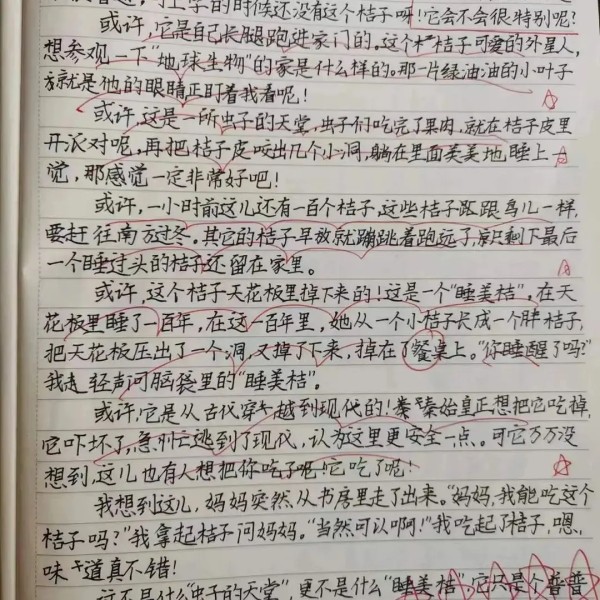 上学的时候还没有这个桔子呀!它会不会很特别呢?
或许,它是自己长腿跑进家门的。这个桔子可爱的外星人,
想参观一下“地球生物”的家是什么样的。那一片绿油油的小叶子
就是他的眼睛正盯着我看呢!
或许,这是一所虫子的天堂,虫子们吃完了果肉,就在桔子皮里
开派对呢,再把桔子皮咬出几个小洞,躺在里面美美地睡上一
觉,那感觉一定非常好吧!
或许,一小时前这儿还有一百个桔子,这些桔子跟鸟儿一样,
要赶往南过冬。其它的桔子早就蹦跳着跑远了,只剩下最后
一个睡过头的桔子还留在家里。
或许,这个桔子天花板里掉下来的!这是一个“睡美桔”,在天
花板里睡了一百年,在这一百年里,她从一个小桔子长成一个胖桔子,
把天花板压出了一个洞,又掉了下来,掉在了餐桌上。“你睡醒了吗?”
我轻声问脑袋里的“睡美桔”。
或许,它是从古代穿越到现代的!秦始皇正想把它吃掉,
它吓坏了,急忙逃到了现代,认为这里更安全一点。可它万万没
想到,这儿也有人想把你吃了呢!它吃了呢!
我想到这儿,妈妈突然从书房里走了出来。“妈妈,我能吃这个
桔子吗?”我拿起桔子问妈妈。“当然可以啊!”我吃起了桔子,嗯,
味道真不错!
这不是什么“虫子的天堂”,更不是什么“睡美桔”,它只是个普普